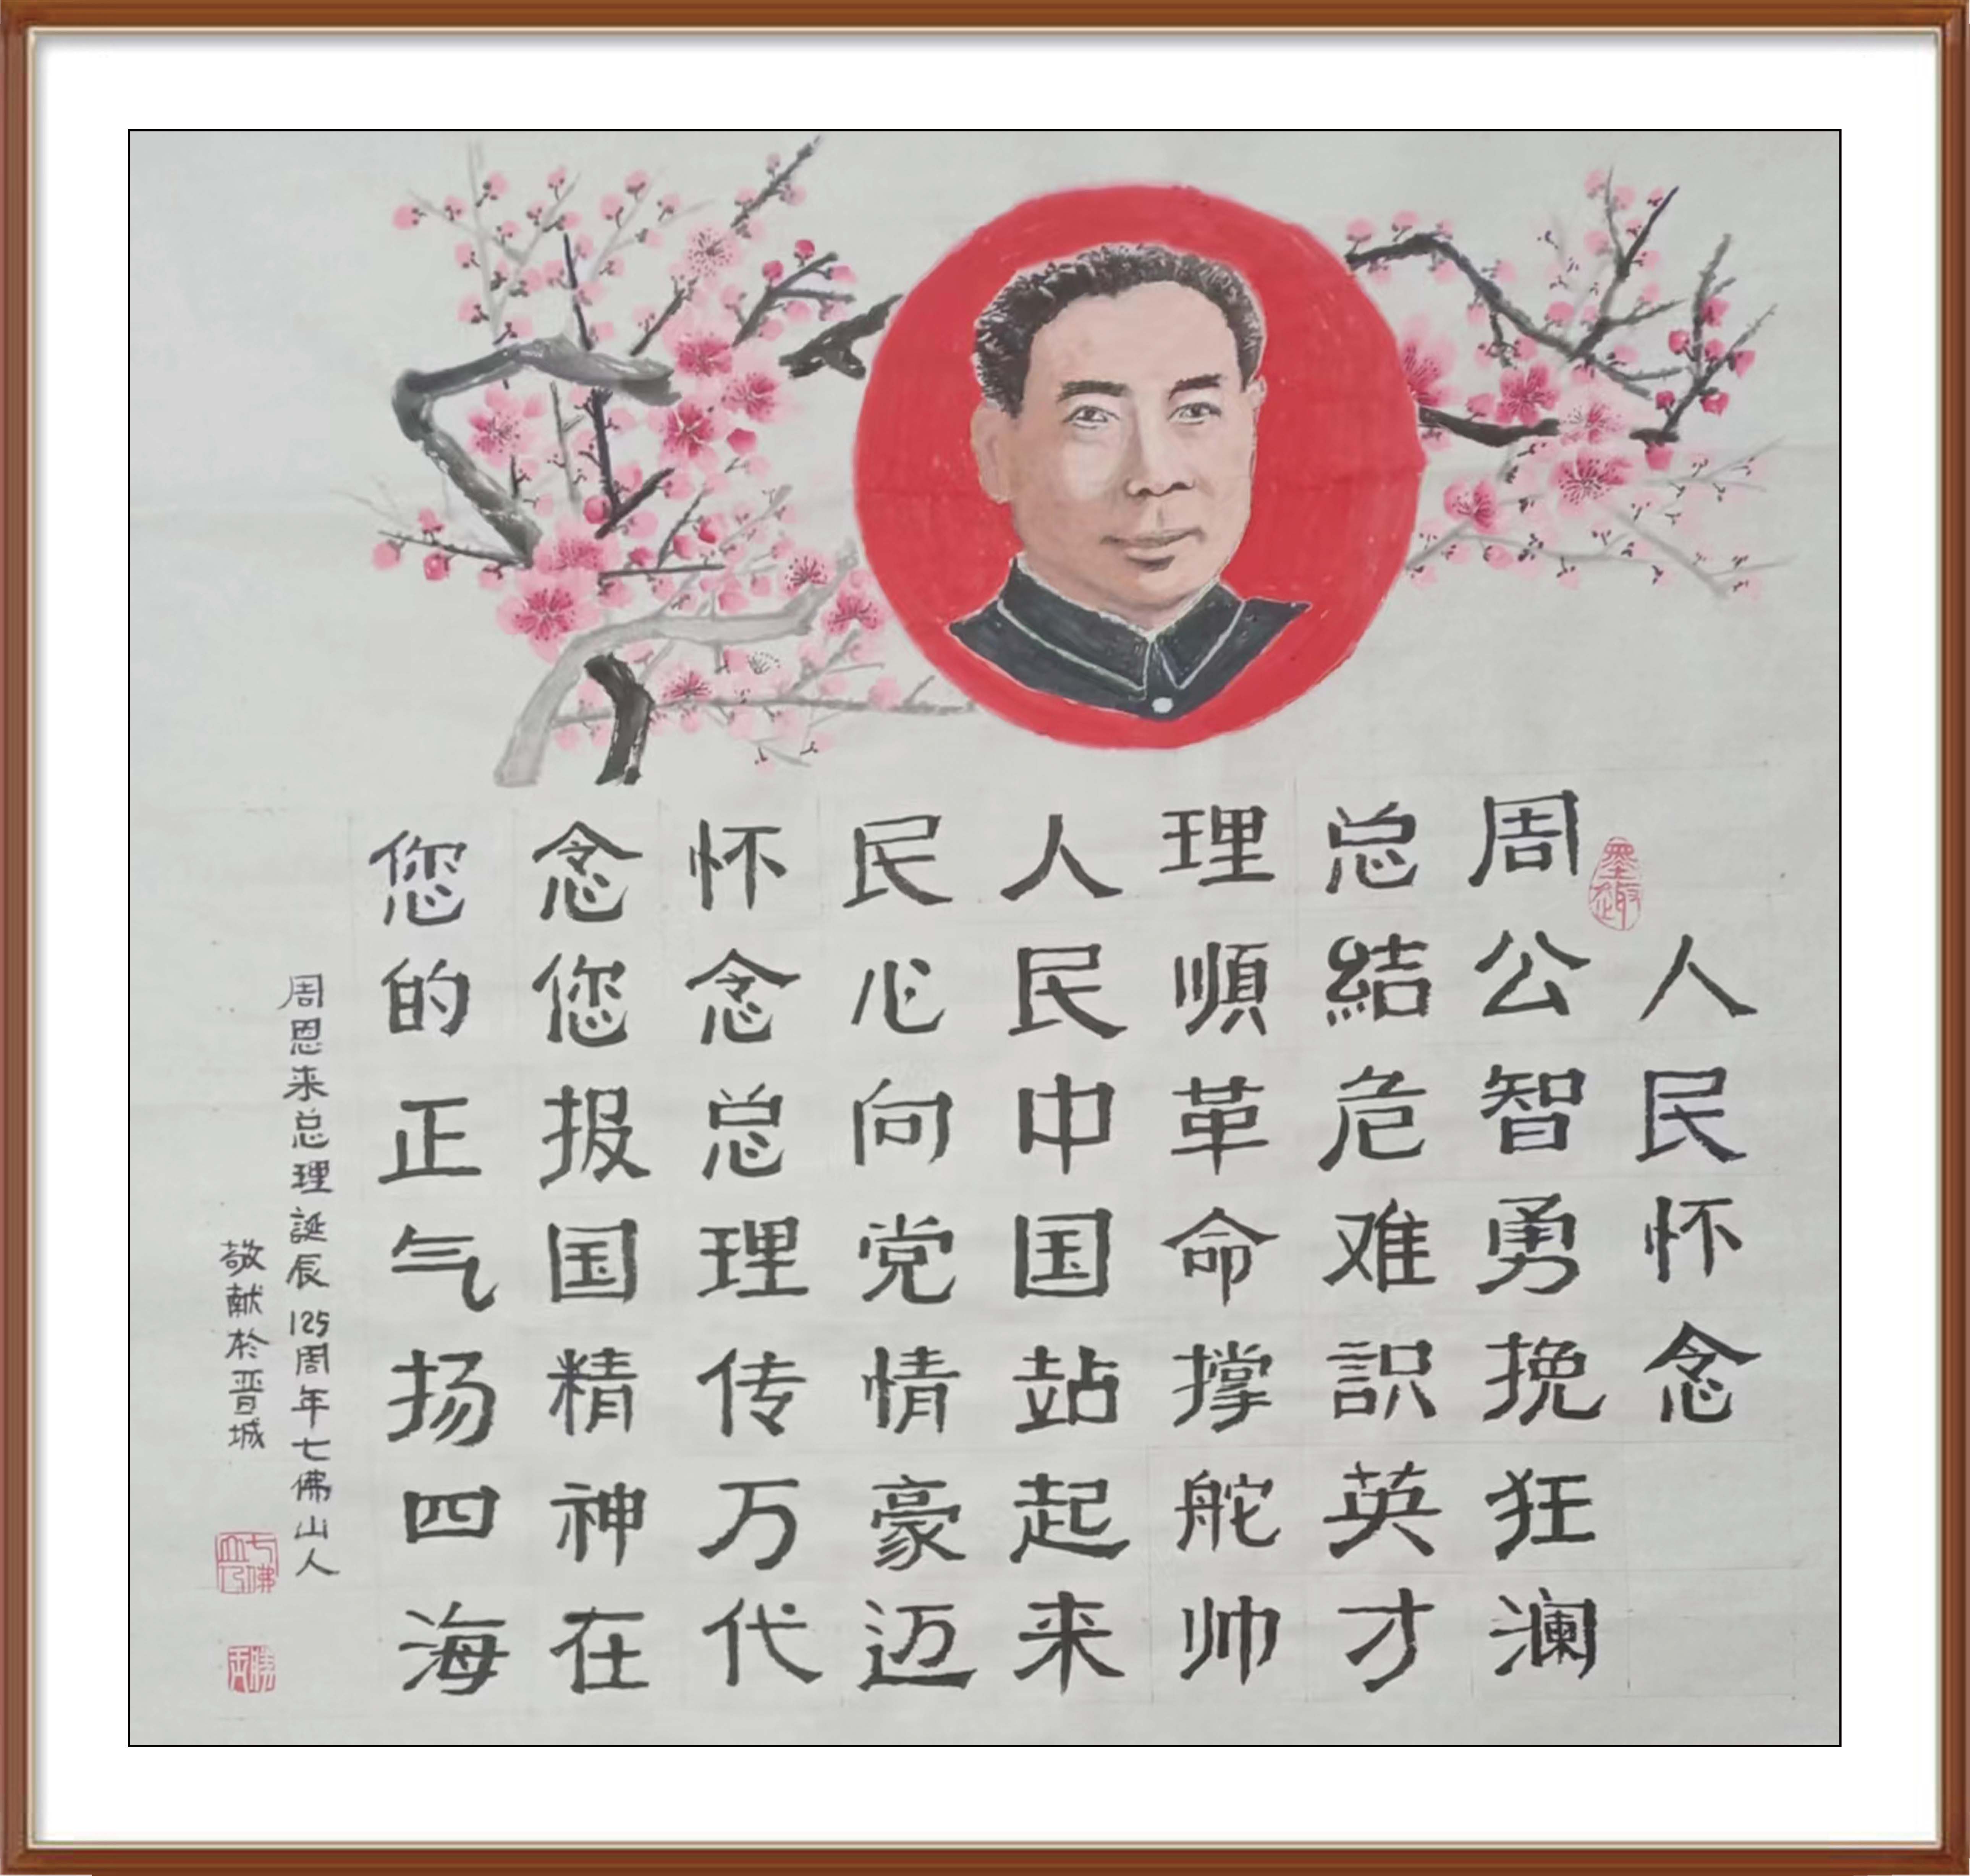 人民怀念
周公智勇挽狂澜
总結危难識英才
理順革命撑舵帅
人民中国站起来
民心向党情豪迈
怀念总理传万代
念您报国精神在
您的正气扬四海
周恩来总理誕辰125周年七佛山人
敬献於晋城
七佛山人